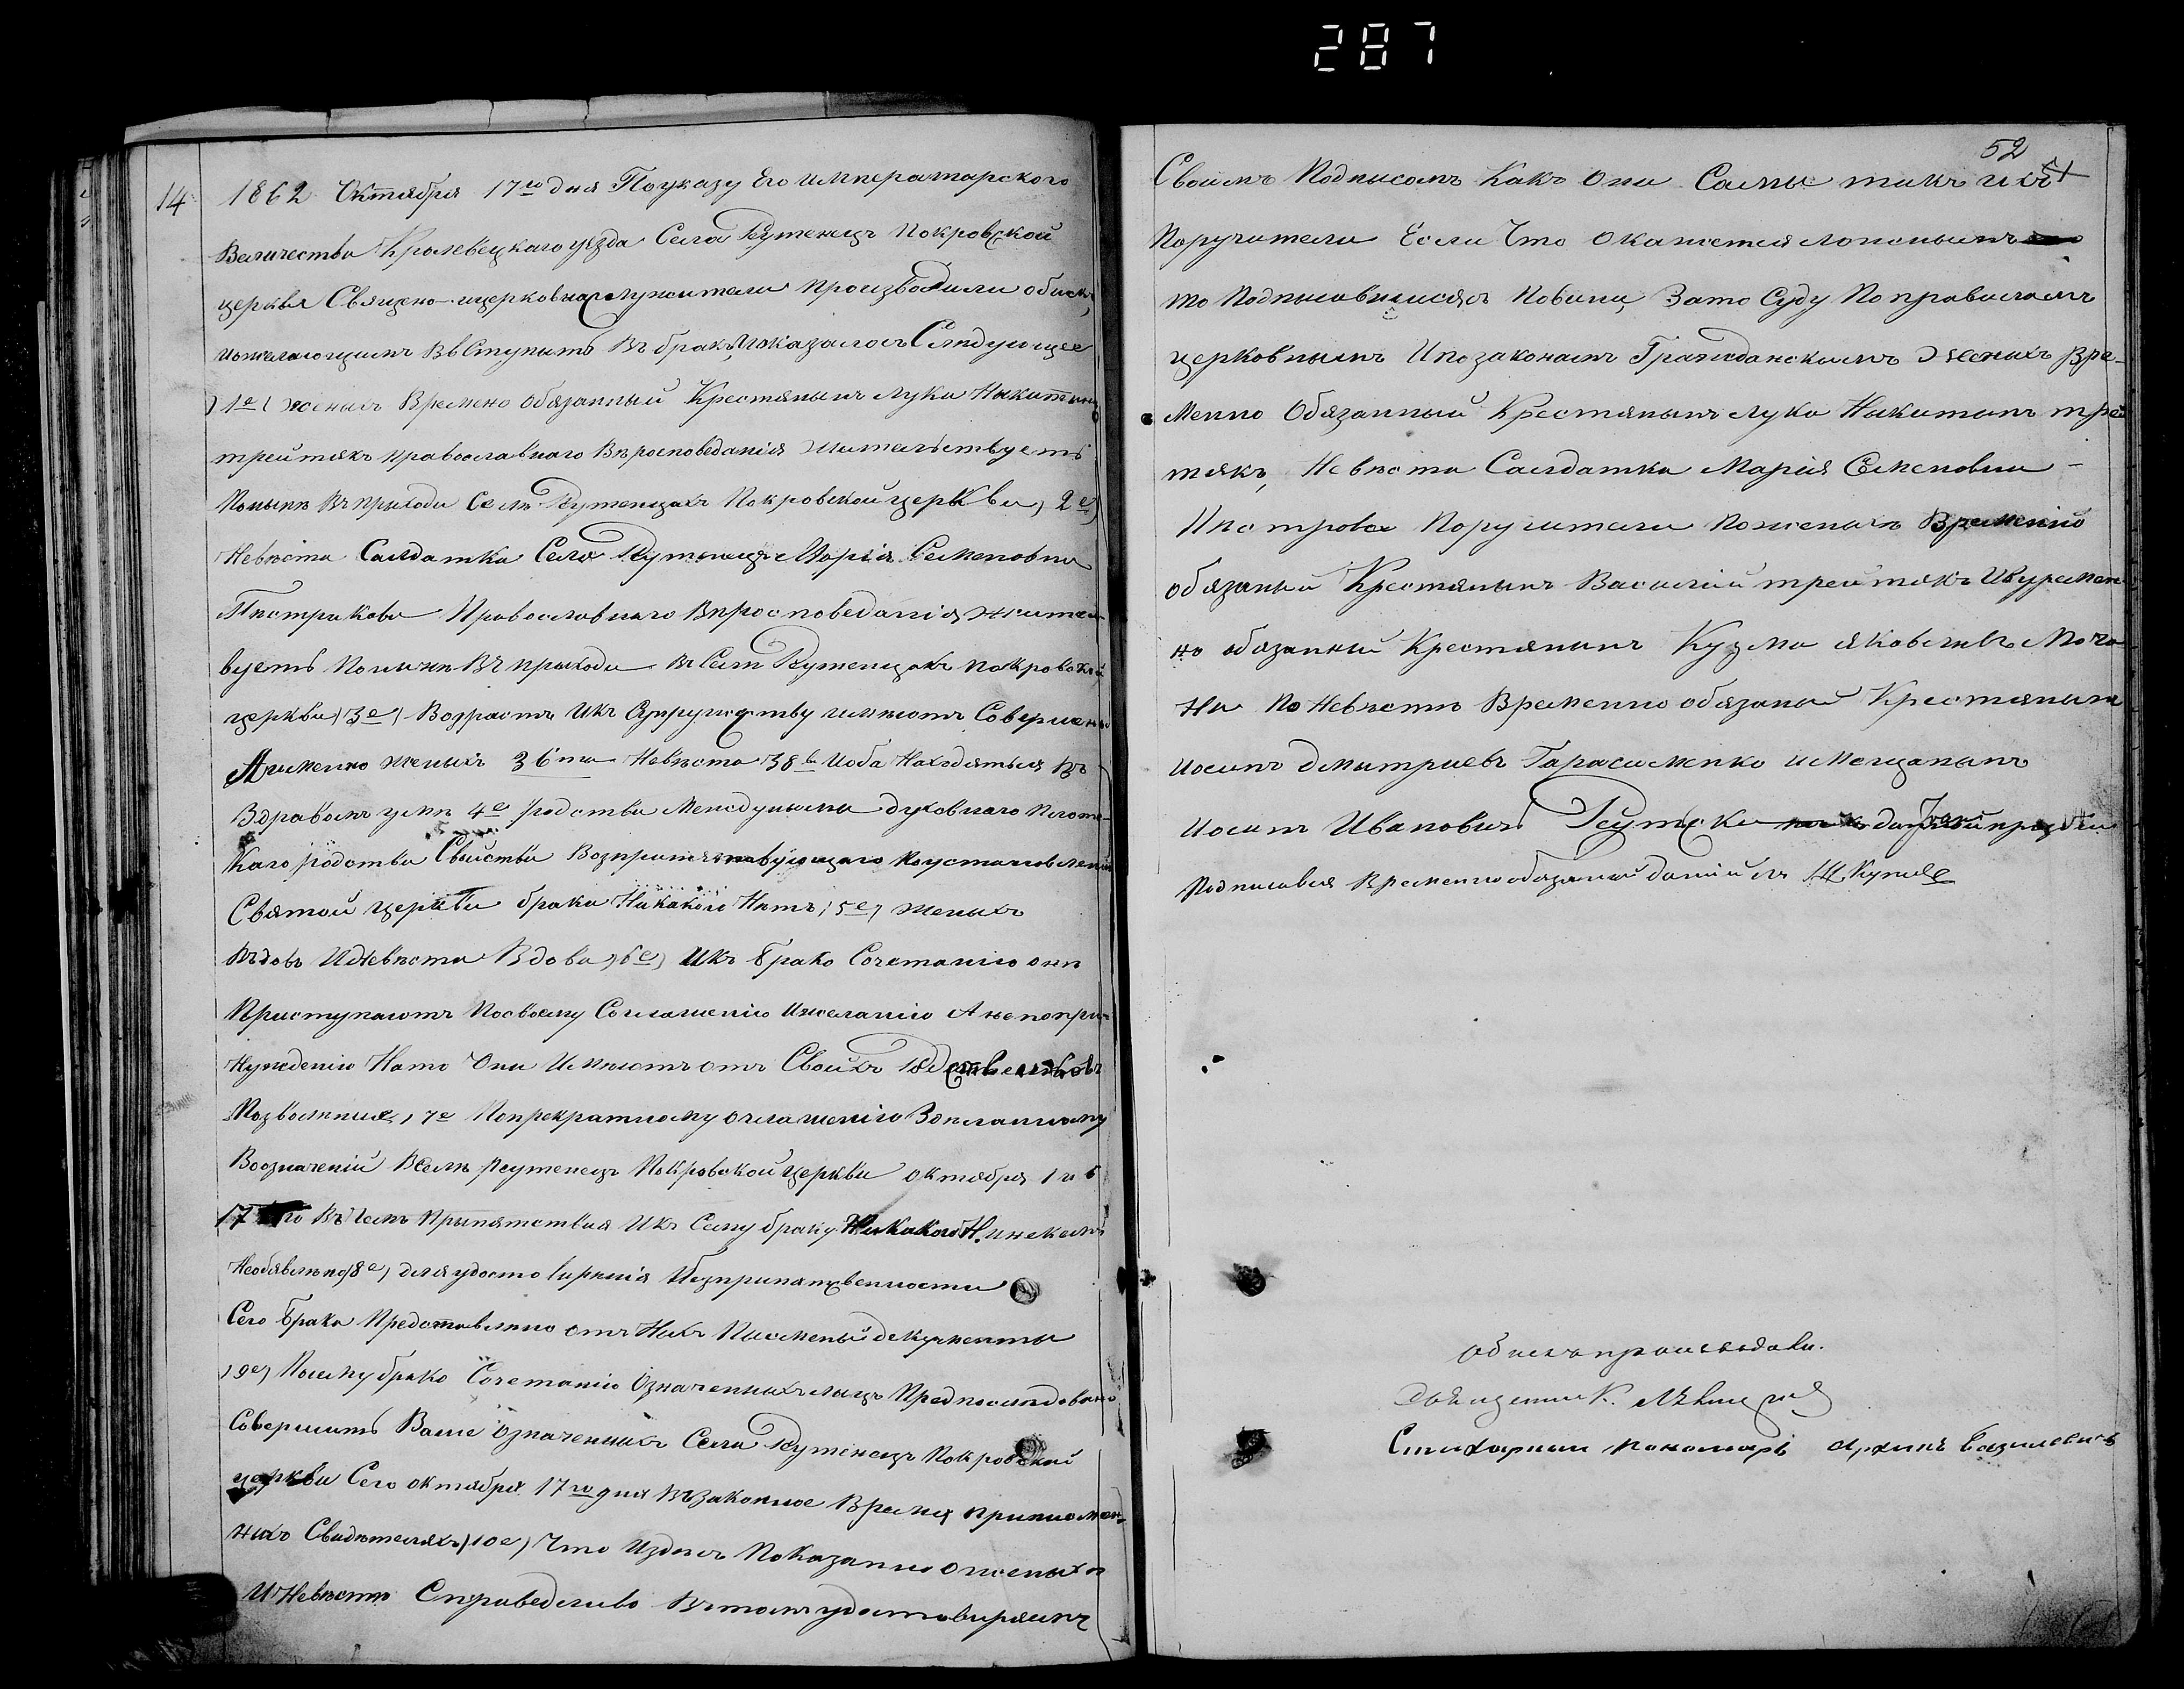 287
14 1862 Октября 17го дня Поуказу Его императарского
Величества Кролевецкаго уѣзда Села Реутенецъ Покровской
церквя Священо-ицерковнослужители произвадили обискъ,
ижелающимъ Вьступить Въ бракъ, ѝоказалось Слѣдующее
)1е( женихъ Времено обязанный Крестянынъ лука Никитинъ
трейтякъ православнаго Вѣросповеданія Жительствуеть
Понынѣ Въ приходи Селѣ Реутенцахъ Покровской церкви, 2е)
Невѣста Салдатка Села Реутенецъ Марія Семеновна
Пѣстрикова Православнаго Вѣросповеданія, жител-
вуеть Понынѣ Въ приходи въ Селѣ Реутенцахъ покровской
церкви) 3е) Возрастъ Икъ Супружеству имѣютъ Совершено
Аименно женыхъ 36ти Невѣста 38ь Иоба Находятъся Въ
Здравомъ умѣ 4е родства Междуными духовнаго Плотс-
Каго родства Свыства Возпритяповующаго Поустановленію
Святой церкви брака Никакого Нѣтъ, 5е) женыхъ
Въдовъ ИНевѣста Вдова, 6е) Икъ Брако Сочетанію онѣ
Приступаютъ Посвоему Согламенію Ижеланію Анепопри-
Нужденію Нато Они Имѣютъ отъ Своихъ Родственыковъ
Позволѣния, 7е Попрекратному оглашенію Зделанному
Возначеній Вселѣ Реутенецъ Покровской церкви октября 1 и 6
17 го Въ Чемъ Прыпятствия Икъ Сему браку Никакого Н. инекемъ
Необявлѣно) 8е) для удостовирѣнія Безприпятственности
Сего брака Представлѣно отъ Нихъ Писменый декументы
) 9е) Посему брако Сочетанію Означенныхъ лицъ Предпослѣдовано
Совершить Ваше означеныхъ Села Реутенецъ Покровской
церкви Сего октября 17го дня Въ Законное Время припосмо-
ныхъ Свидѣтеляхъ) 10е) Что Издѣсъ Показанно о женыхѣ
И Невѣстѣ Справедливо Въ томъ удостовиряемъ
52
Своимъ Подписомъ Какъ Они Самые такъ ихъ
Поручители Если Что Окажется лопонымъ
то Подписавшися Повини, Зато Суду По правиламъ
церковнымъ И по законамъ Гражданскимъ Женыхъ Вре-
менно Обязанный Крестянынъ лука Никитинъ трей
тякъ, Невѣста Салдатка Марія Семеновна -
Пѣстрова Поручители Поженыхѣ Временно
обязаный Крестянынъ Василій трейтякъ Ивуремен-
но обязаный Крестянынъ Кузма Яковливъ Моча
На По Невѣстѣ Временно обязаный Крестянынъ
иосипъ дмытриевъ Гарасименко и Мещанынъ
иосипъ Ивановичъ Реутски
Подписався Временнообязаной Данійлъ
обискъ производили.
Священник. Лѣвицкій
Стихарный пономарь Архипъ Базилевичъ